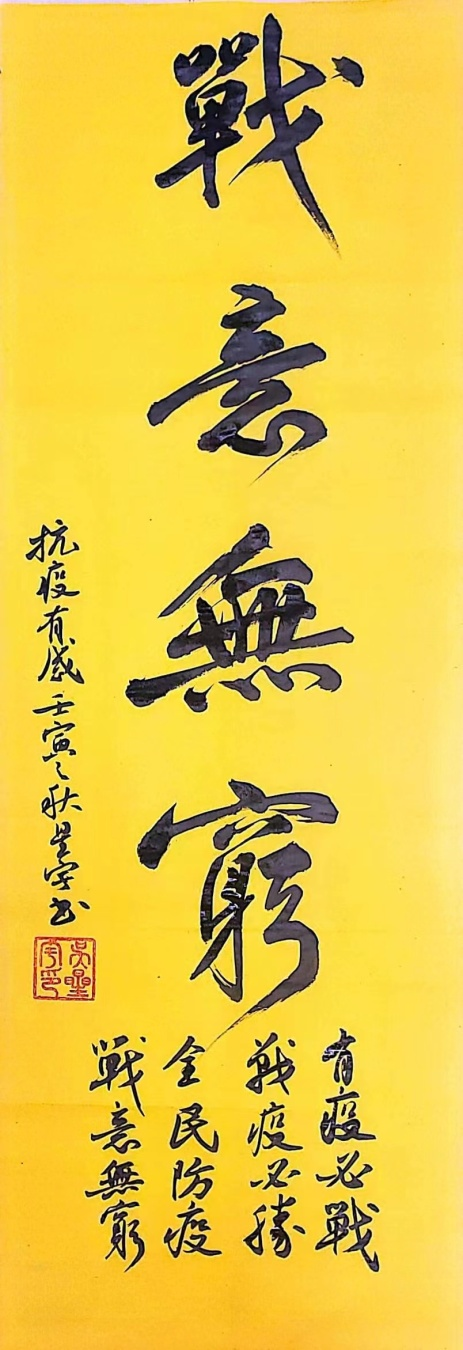 戰意無窮
有疫必戰
戰疫必勝
全民防疫
戰意無窮
抗疫有感壬寅之秋星宇书
吴星宇印